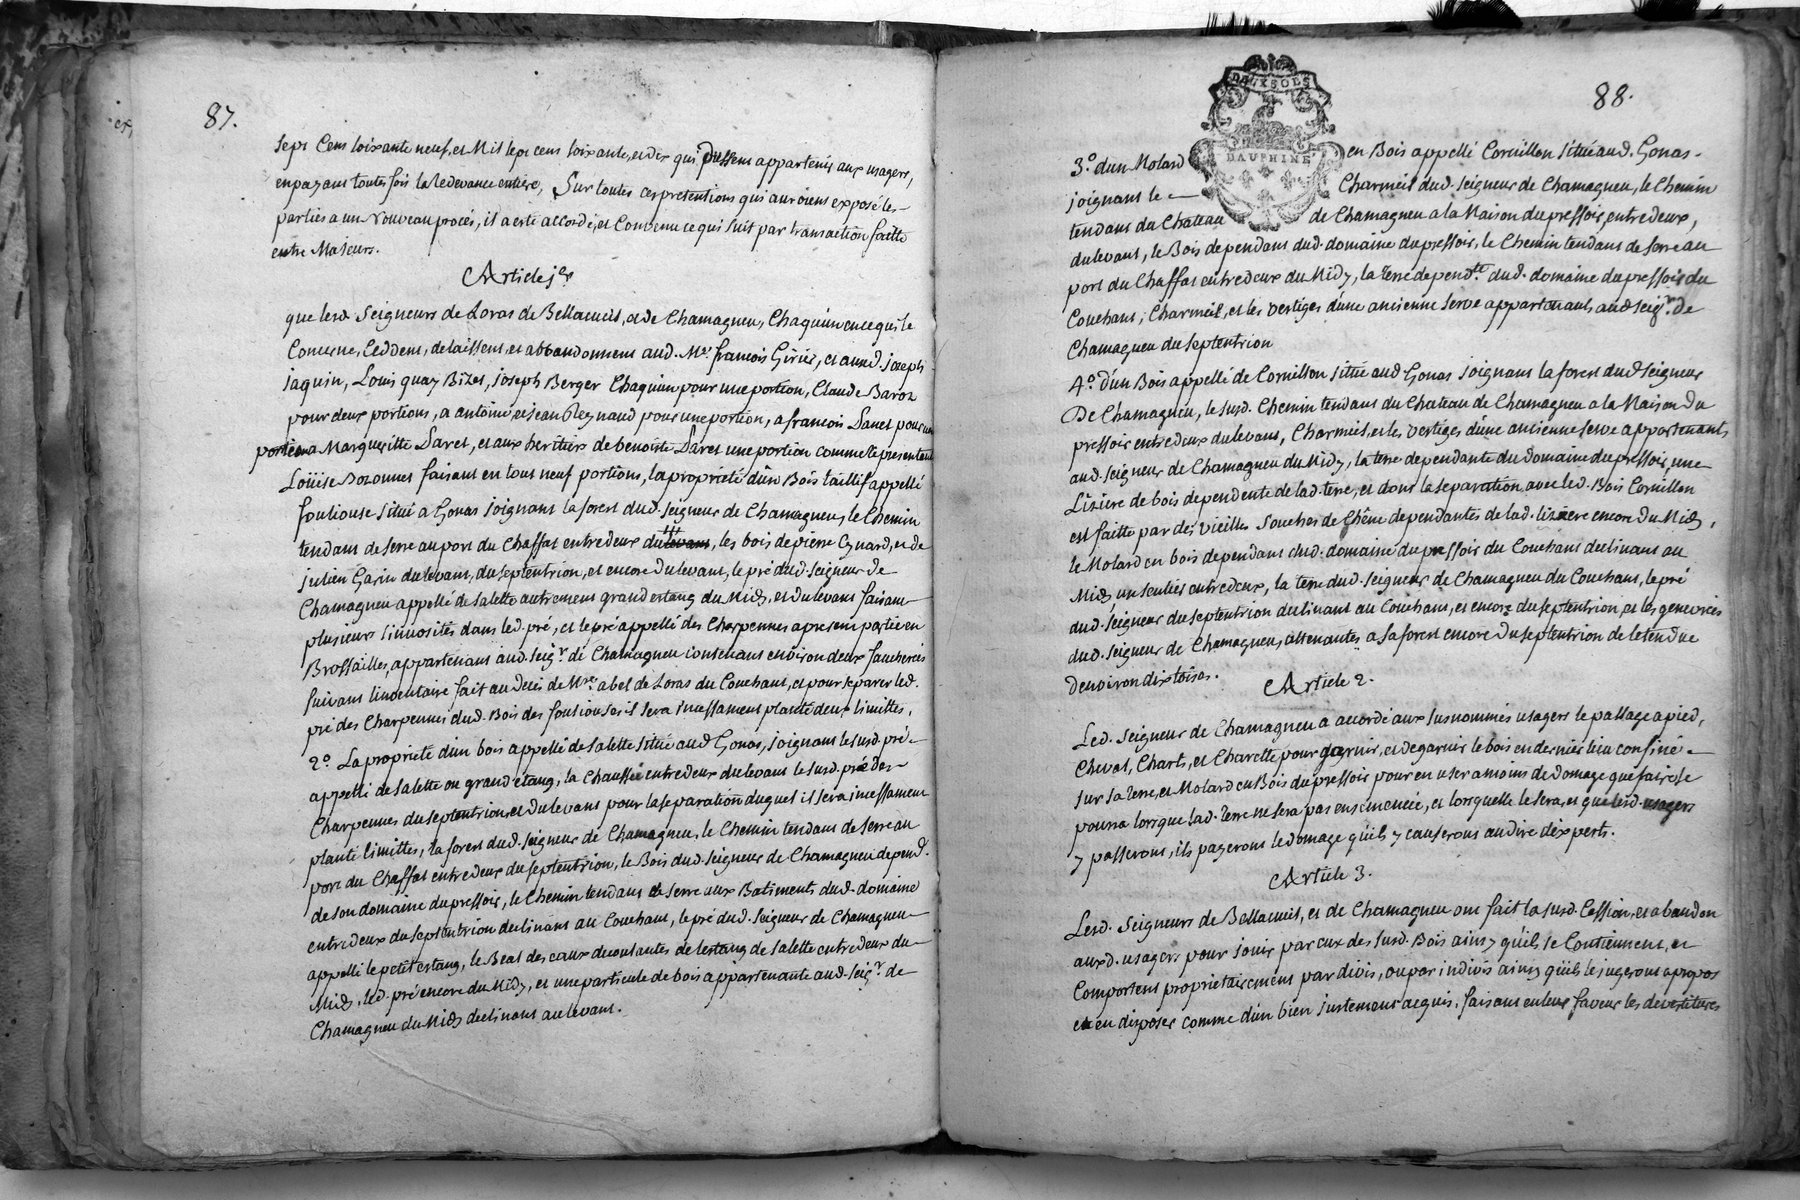 87.
sept Cens soixante neuf, et Mil sept cens soixante, et dix qui pussent appartenir aux usagers,
en payans toutes fois la Redevance entiere, Sur toutes ces pretentions qui auroient exposé les
parties a un Nouveau procés, il a esté accordé, et Convenu ce qui suit par transaction faitte
entre Majeurs.
Article 1er
que lesd Seigneurs de Loras de Bellacueil, et de Chamagneu, Chaquun en ce qui le
Concerne, Ceddent, delaissent, et abbandonnent aud. Mr françois Girier, et aused. joseph
jaquin, Louis quay Bizet, joseph Berger Chaquun pour une portion, Claude Baroz
pour deux portions, a antoine et jean Reynaud pour une portion, a françois Daret pour une
portion a Margueritte Daret, et aux heritiers de benoite Daret une portion comme representant
Loüise Dozonnet faisant en tous neuf portions, la propriété d'ün Bois taillif appellé
fouliouse situé a Gonas joignant la forest dud. seigneur de Chamagneu, le Chemin
tendant de serre au port du Chaffat entre deux du levant, les bois de pierre Cynard, et de
julien Garin du levant, du septentrion, et encore du levant, le pré dud. seigneur de
Chamagneu appellé de Salette autrement grand estang du Midy, et du levant faisant
plusieurs sinuosités dans led. pré, et le pré appellé des Charpennes a present partie en
Brossailles, appartenant aud. seigr. de Chamagneu contenant environ deux faucherées
suivant linventaire fait au decés de Mre abel de Loras du Couchant, et pour separer led.
pré des Charpennes dud. Bois des fouliouses il sera incessament planté deux limittes,
2o. La proprieté d'un bois appellé de Salette situé aud Gonas, joignant le susd. pré
appellé de Salette ou grand etang, la Chaussée entre deux du levant le susd. pré des
Charpennes du septentrion, et du levant pour la separation duquel il sera incessament
planté limittes, la forest dud. Seigneur de Chamagneu, le Chemin tendant de serre au
port du Chaffat entre deux du septentrion, le Bois dud. seigneur de Chamagneu depend.
de son domaine du pressoir, le Chemin tendant de serre aux Batiments dud. domaine
entre deux du septentrion declinant au Couchant, le pré dud. seigneur de Chamagneu
appellé le petit estang, le Beal des eaux decoulantes de lestang de Salette entre deux du
Midy, led. pré encore du Midy, et une particule de bois appartenante aud. seigr. de
Chamagneu du Midy declinant au levant.
88.
DEUX SOLS
DAUPHINÉ
3o. d'un Molard en Bois appellé Cornillon situé aud. Gonas
joignant le Charmeil dud. seigneur de Chamagneu, le Chemin
tendant du Chateau de Chamagneu a la Maison du pressoir, entre deux,
du levant, le Bois dependant dud. domaine du pressoir, le Chemin tendant de serre au
port du Chaffat entre deux du Midy, la terre dependte dud. domaine du pressoir du
Couchant, Charmeil, et les vertiges d'une ancienne serve appartenant aud. seigr. de
Chamagneu du septentrion
4o. d'un Bois appellé de Cornillon situé aud Gonas joignant la forest dud Seigneur
De Chamagneu, le susd. Chemin tendant du Chateau de Chamagneu a la Maison du
pressoir entre deux du levant, Charmeil, et les vertiges d'une ancienne serve appartenants
aud. seigneur de Chamagneu du Midy, la terre dependante du domaine du pressoir, une
Lizière de bois dependente de lad. terre, et dont la separation avec led. Bois Cornillon
est faitte par des vieilles souches de Chêne dependantes de lad. liziere encore du Midy,
le Molard en bois dependant dud. domaine du pressoir du Couchant declinant au
Midy un sentier entre deux, la terre dud. seigneur de Chamagneu du Couchant, le pré
dud. seigneur du septentrion declinant au Couchant, et encore du septentrion, et les genevriers
dud. seigneur de Chamagneu, attenantes a sa forest encore du septentrion de letendue
denviron dix toises.
Article 2.
Led. Seigneur de Chamagneu a accordé aux susnommés usagers le passage a pied,
Cheval, Chart, et Charette pour garnir, et degarnir le bois en dernier lieu confiné
sur sa terre, et Molard en Bois du pressoir pour en user a moins de domage que faire se
pourra lorsque lad. terre ne sera pas ensemencée, et lorsquelle le sera, et que lesd. usagers
y passeront, ils payeront le domage qu'ils y causeront au dire d'experts.
Article 3.
Lesd. Seigneurs de Bellacueil, et de Chamagneu ont fait la susd. Cession, et abandon
auxd. usagers pour jouir par eux des susd. Bois ainsy qu'ils se Contiennent, et
Comportent proprietairement par divis, ou par indivis ainsy qu'ils le jugeront a propos
et en disposer comme d'un bien justement acquis, faisant en leur faveur les devestitures